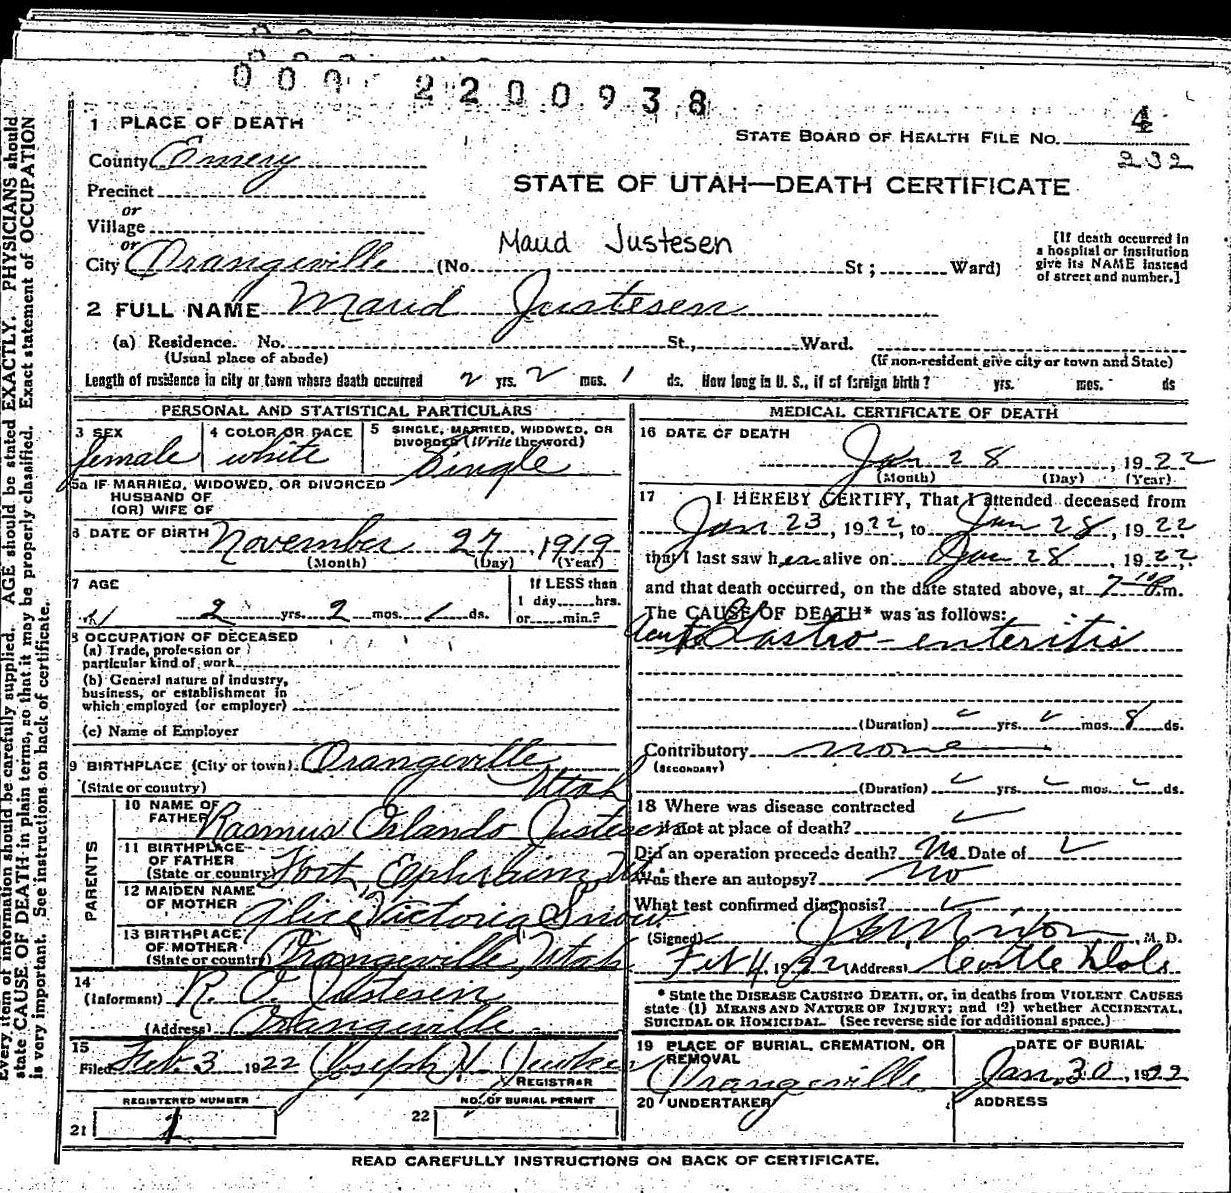 000 2200938
1 PLACE OF DEATH
STATE BOARD OF HEALTH FILE No. 4
County Emery
232
Precinct
STATE OF UTAH—DEATH CERTIFICATE
or
Village
or
Maud Justesen
City Orangeville (No. St; Ward)
[If death occurred in
a hospital or institution
give its NAME instead
of street and number.]
2 FULL NAME Maud Justesen
(a) Residence. No. St., Ward.
(Usual place of abode)
(If non-resident give city or town and State)
Length of residence in city or town where death occurred 2 yrs. 2 mos. 1 ds. How long in U. S., if of foreign birth? yrs. mos. ds
PERSONAL AND STATISTICAL PARTICULARS
3 SEX
female
4 COLOR OR RACE
white
5 SINGLE, MARRIED, WIDOWED, OR
DIVORCED (Write the word)
Single
5a IF MARRIED, WIDOWED, OR DIVORCED
HUSBAND OF
(OR) WIFE OF
6 DATE OF BIRTH November 27, 1919
(Month) (Day) (Year)
7 AGE
2 yrs. 2 mos. 1 ds.
If LESS than
1 day hrs.
or min.?
8 OCCUPATION OF DECEASED
(a) Trade, profession or
particular kind of work
(b) General nature of industry,
business, or establishment in
which employed (or employer)
(c) Name of Employer
9 BIRTHPLACE (City or town) Orangeville
(State or country) Utah
PARENTS
10 NAME OF
FATHER Rasmus Orlando Justesen
11 BIRTHPLACE
OF FATHER
(State or country) Fort Ephriam Ut.
12 MAIDEN NAME
OF MOTHER Alice Victoria Snow
13 BIRTHPLACE
OF MOTHER
(State or country) Orangeville, Utah
14
(Informant) R. O. Justesen
(Address) Orangeville
15
Filed Feb. 3 1922 Joseph H.
REGISTRAR
REGISTERED NUMBER
21 1
NO. OF BURIAL PERMIT
22
MEDICAL CERTIFICATE OF DEATH
16 DATE OF DEATH
Jan 28, 1922
(Month) (Day) (Year)
17 I HEREBY CERTIFY, That I attended deceased from
Jan 23, 1922, to Jan 28, 1922
that I last saw her alive on Jan 28, 1922,
and that death occurred, on the date stated above, at 7 10 P.m.
The CAUSE OF DEATH* was as follows:
Acute Gastro-enteritis
(Duration) yrs. mos. 8 ds.
Contributory none
(SECONDARY)
(Duration) yrs. mos. ds.
18 Where was disease contracted
if not at place of death?
Did an operation precede death? No Date of
Was there an autopsy? No
What test confirmed diagnosis?
(Signed) , M. D.
Feb 4, 1922 (Address)
* State the DISEASE CAUSING DEATH, or, in deaths from VIOLENT CAUSES
state (1) MEANS AND NATURE OF INJURY; and (2) whether ACCIDENTAL,
SUICIDAL OR HOMICIDAL. (See reverse side for additional space.)
19 PLACE OF BURIAL, CREMATION, OR
REMOVAL
Orangeville
DATE OF BURIAL
Jan. 30, 1922
20 UNDERTAKER
ADDRESS
READ CAREFULLY INSTRUCTIONS ON BACK OF CERTIFICATE.
Every item of information should be carefully supplied. AGE should be stated EXACTLY. PHYSICIANS should
state CAUSE OF DEATH in plain terms, so that it may be properly classified. Exact statement of OCCUPATION
is very important. See instructions on back of certificate.